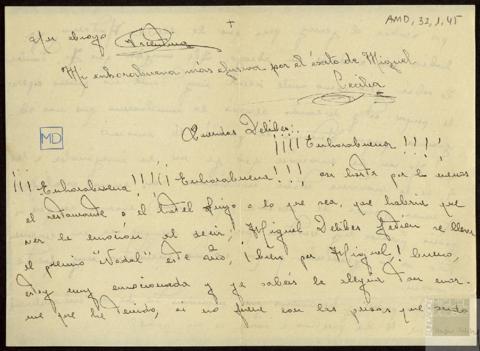 AMD, 32, 1, 45
+
un abrazo
Mi enhorabuena más efusiva por el éxito de Miguel
Cecilia
MD
Queridos Delibes:
¡¡¡¡ Enhorabuena !!!!
¡¡¡ Enhorabuena !!! ¡¡¡ Enhorabuena !!! así hasta por lo menos
el restaurante o el hotel o lo que sea, que habría que
ver la emoción al decir, ¡ Miguel Delibes se lleva
el premio "Nadal" este año, ¡ bien por Miguel ! bueno,
estoy muy emocionada y ya sabéis la alegría tan enor-
me que he tenido, si no fuese con las prisas que ando